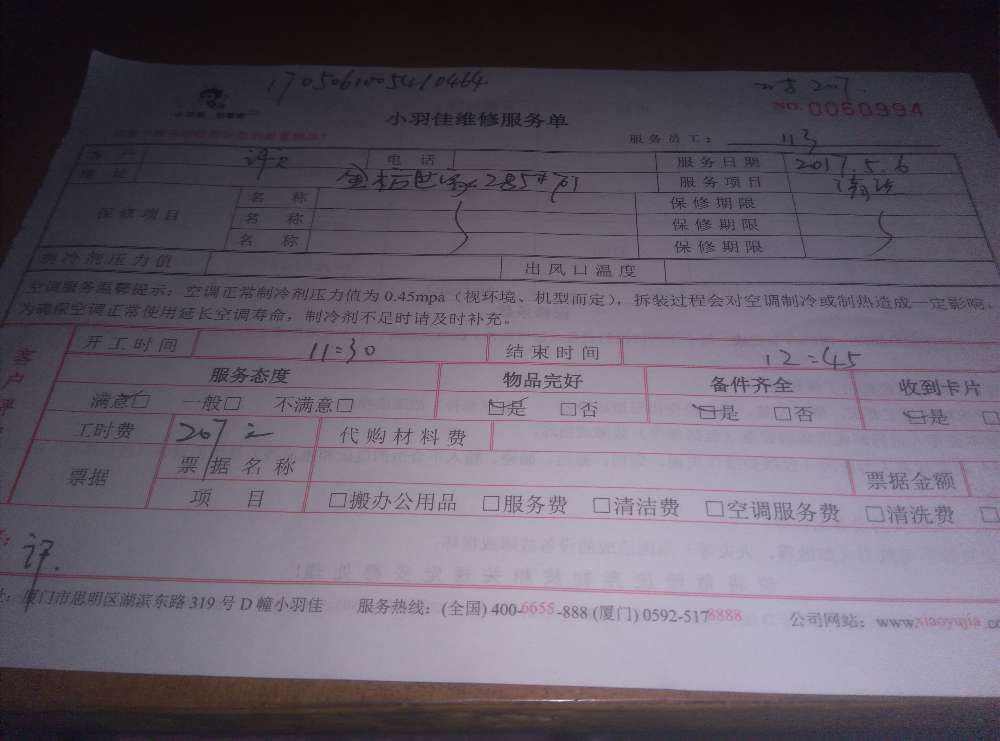 小羽佳维修服务单
NO. 0060994
服务员工： 113
客户 电话 服务日期 2017.5.6
地址 285# 服务项目
保修项目 名称 保修期限
名称 保修期限
名称 保修期限
制冷剂压力值 出风口温度
空调服务温馨提示：空调正常制冷剂压力值为0.45mpa（视环境、机型而定），拆装过程会对空调制冷或制热造成一定影响，
为确保空调正常使用延长空调寿命，制冷剂不足时请及时补充。
开工时间 11:30 结束时间 12:45
服务态度 物品完好 备件齐全 收到卡片
满意□ 一般□ 不满意□ □是 □否 □是 □否 □是
工时费 207元 代购材料费
票据 票据名称 票据金额
项目 □搬办公用品 □服务费 □清洁费 □空调服务费 □清洗费
厦门市思明区湖滨东路319号D幢小羽佳 服务热线：(全国) 400-6655-888 (厦门) 0592-5178888 公司网站：www.xiaoyujia.co